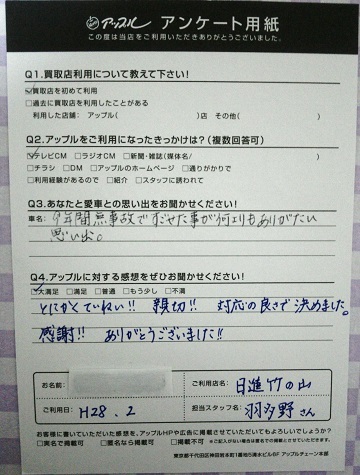 アップル アンケート用紙
この度は当店をご利用いただきありがとうございました。
Q1.買取店利用について教えて下さい!
☑買取店を初めて利用
□過去に買取店を利用したことがある
利用した店舗: アップル( )店 その他( )
Q2.アップルをご利用になったきっかけは?(複数回答可)
☑テレビCM □ラジオCM □新聞・雑誌(媒体名/ )
□チラシ □DM □アップルのホームページ □通りがかりで
□利用経験があるので □紹介 □スタッフに誘われて
Q3.あなたと愛車との思い出をお聞かせください!
車名: 9年間無事故ですごせた事が何よりもありがたい
思い出。
Q4.アップルに対する感想をぜひお聞かせください!
☑大満足 □満足 □普通 □もう少し □不満
とにかくていねい!! 親切!! 対応の良さで決めました。
感謝!! ありがとうございました!!
お名前
ご利用店名 日進竹の山
ご利用日 H28.2
担当スタッフ名 羽多野さん
お客様に書いていただいた感想を、アップルHPや広告に掲載させていただいてもよろしいでしょうか?
□実名で掲載可 □匿名なら掲載可 □掲載不可
東京都千代田区神田岩本町1番地5清水ビル6F アップルチェーン本部